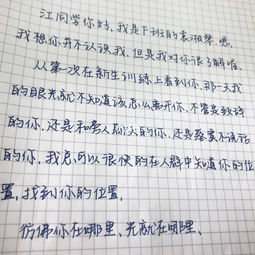 江同学你好，我是F班的袁湘琴，嗯
我想你并不认识我，但是我对你很了解喔，
从第一次在新生训练上看到你，那一天我
的眼光就不知道该怎么离开你，不管是致词
的你，还是和旁人聊天的你，还是落寞不说话
的你，我总可以很快的在人群中知道你的位
置，找到你的位置，
仿佛你在哪里、光就在哪里、